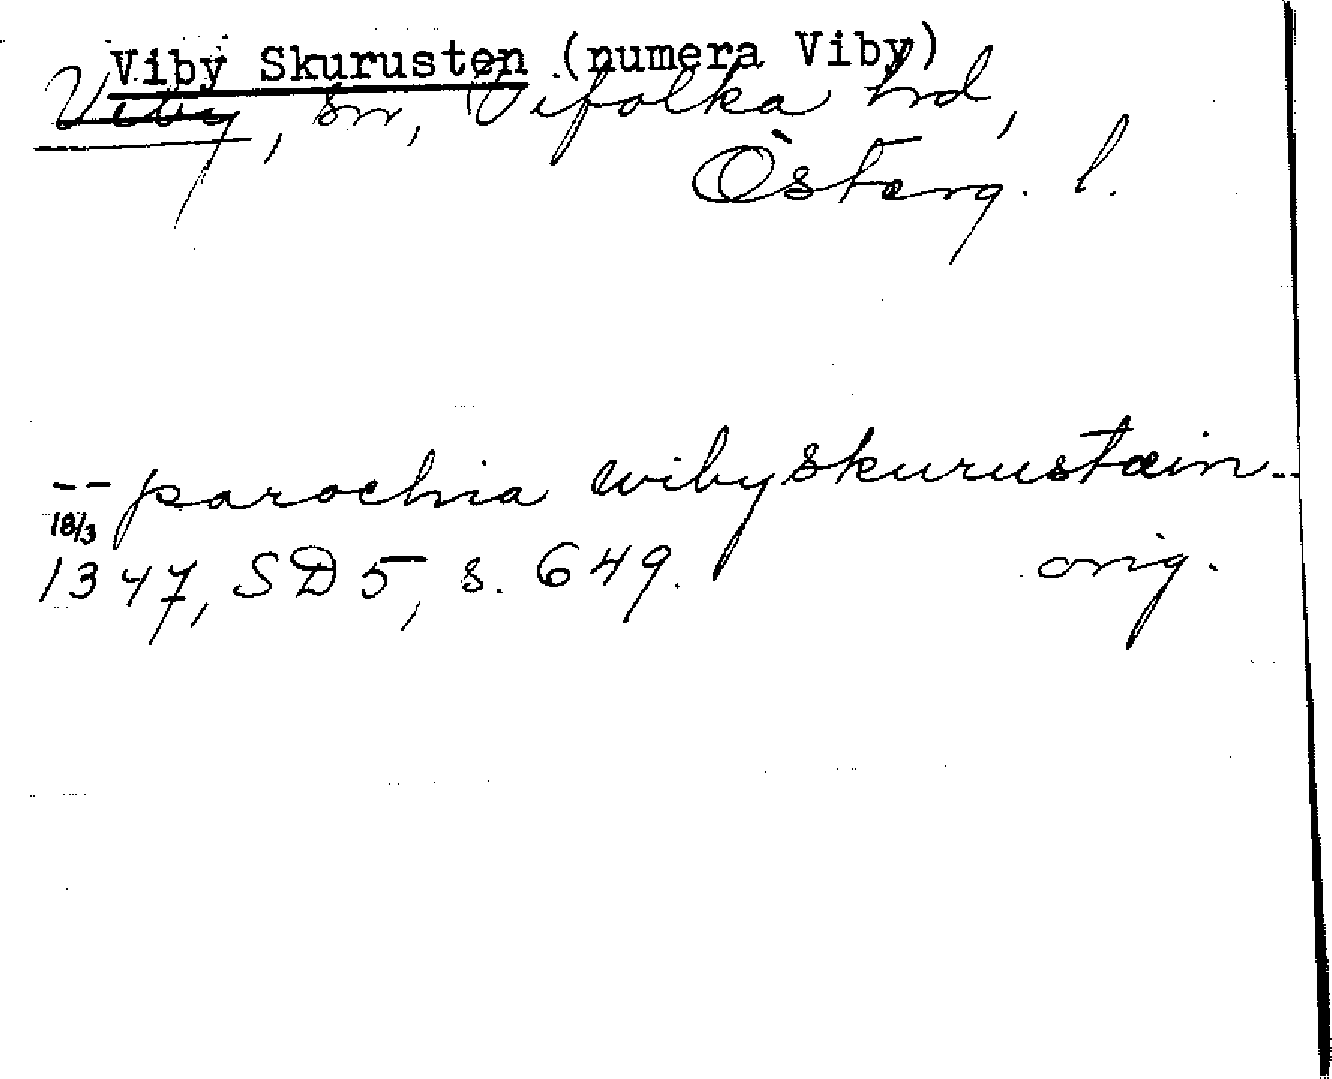 Viby Skurusten (numera Viby)
Viby, sn, Vifolka hd,
Österg. l.
-- parochia wibyskurustæin --
18/3
1347, SD 5, s. 649. orig.